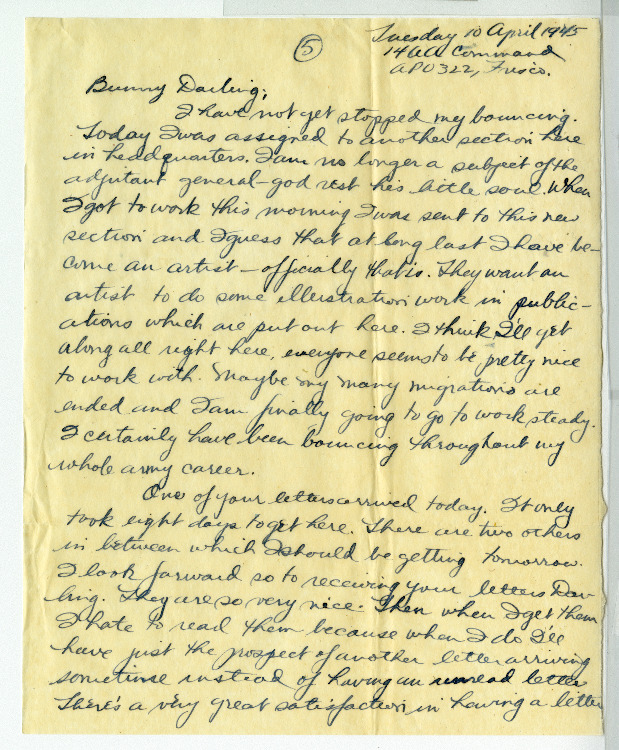 5
Tuesday 10 April 1945
14AA Command
APO 322, Frisco.
Bunny Darling,
I have not yet stopped my bouncing.
Today I was assigned to another section here
in headquarters. I am no longer a subject of the
adjutant general - god rest his little soul. When
I got to work this morning I was sent to this new
section and I guess that at long last I have be-
come an artist - officially that is. They want an
artist to do some illerstration work in public-
ations which are put out here. I think I'll get
along all right here, everyone seems to be pretty nice
to work with. Maybe my many migrations are
ended and I am finally going to go to work steady.
I certainly have been bouncing throughout my
whole army career.
One of your letters arrived today. It only
took eight days to get here. There are two others
in between which I should be getting tomorrow.
I look forward so to receiving your letters Dar-
ling. They are so very nice. Then when I get them
I hate to read them because when I do I'll
have just the prospect of another letter arriving
sometime instead of having an unread letter
There's a very great satisfaction in having a letter